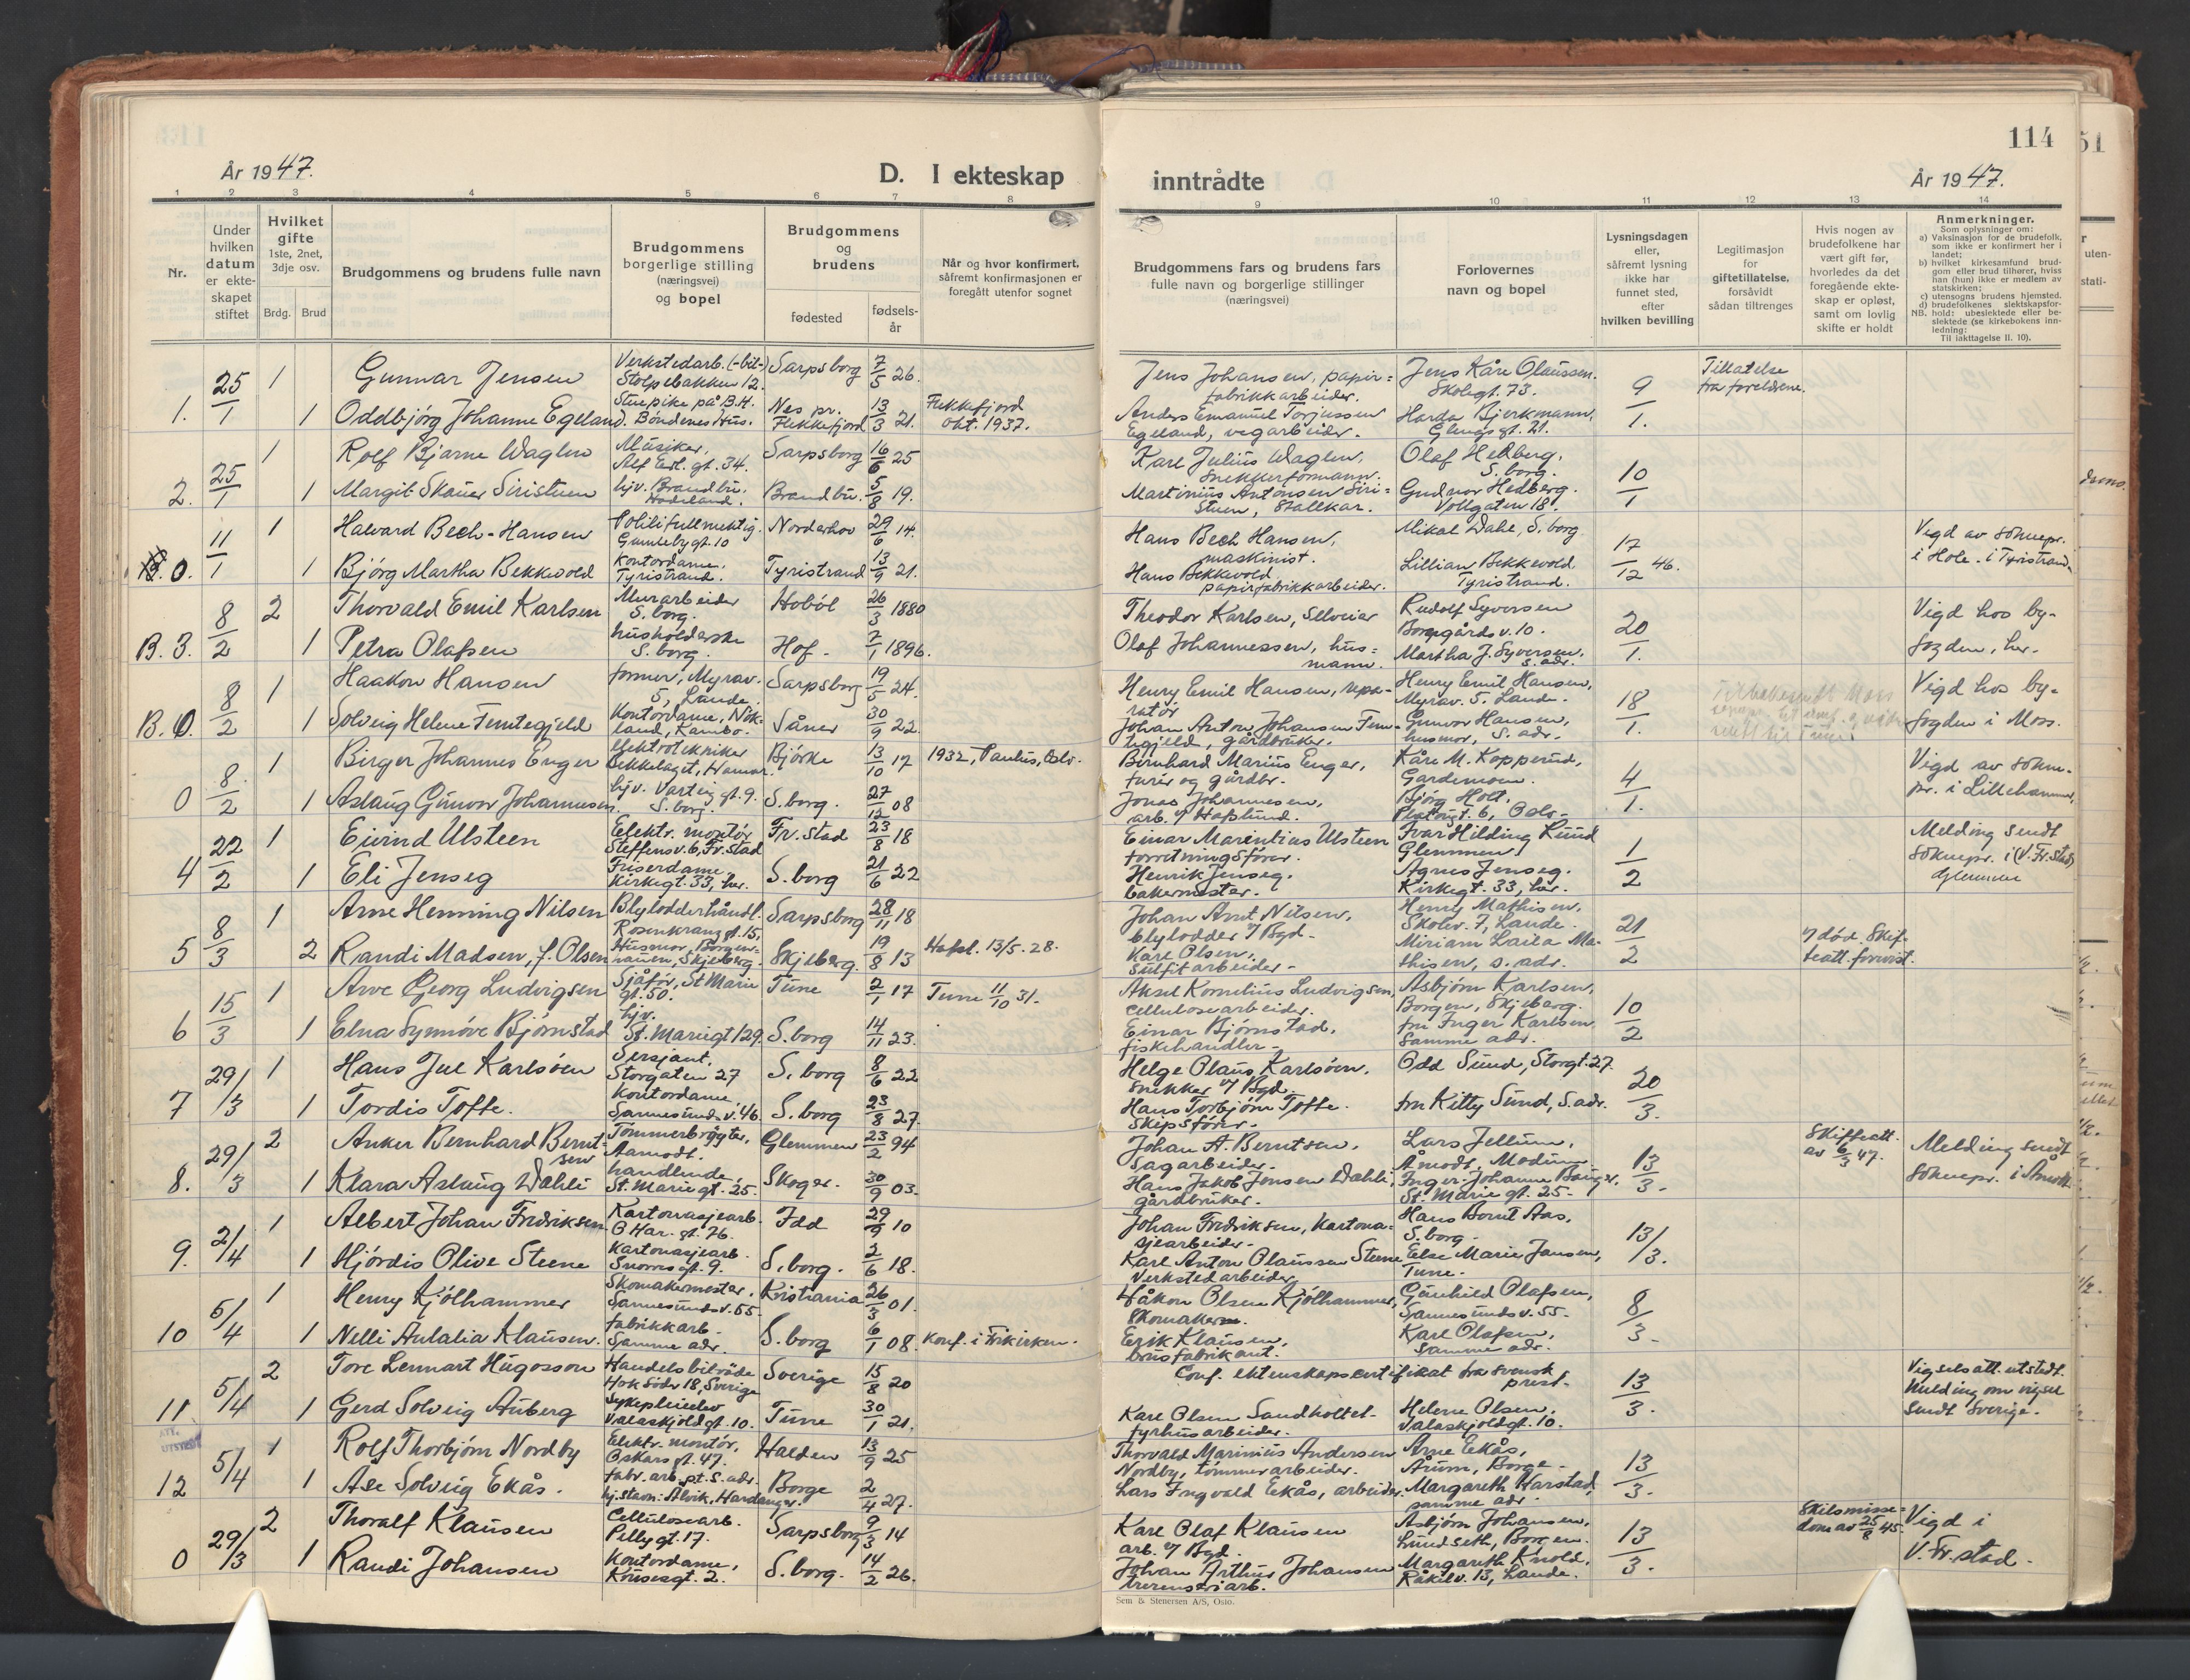 114
År 1947.
D. I ekteskap
inntrådte
År 1947.
1 2 3 4 5 6 7 8 9 10 11 12 13 14
Nr.
Under hvilken datum er ekteskapet stiftet
Hvilket gifte
1ste, 2net, 3dje osv.
Brdg. Brud
Brudgommens og brudens fulle navn
Brudgommens borgerlige stilling (næringsvei) og bopel
Brudgommens og brudens
fødested
fødsels-år
Når og hvor konfirmert, såfremt konfirmasjonen er foregått utenfor sognet
Brudgommens fars og brudens fars fulle navn og borgerlige stillinger (næringsvei)
Forlovernes navn og bopel
Lysningsdagen eller, såfremt lysning ikke har funnet sted, efter hvilken bevilling
Legitimasjon for giftetillatelse, forsåvidt sådan tiltrenges
Hvis nogen av brudefolkene har vært gift før, hvorledes da det foregående ekteskap er opløst, samt om lovlig skifte er holdt
Anmerkninger.
Som oplysninger om:
a) Vaksinasjon for de brudefolk, som ikke er konfirmert her i landet;
b) hvilket kirkesamfund brudgom eller brud tilhører, hviss han (hun) ikke er medlem av statskirken;
c) utensogns brudens hjemsted.
d) brudefolkenes slektskapsforhold: ubeslektede eller beslektede (se kirkebokens innledning:
NB.
Til iakttagelse II. 10).
1. 25/1 1 Gunnar Jensen Verkstedarb. (-bil-) Stolpebakken 12. Sarpsborg 7/5 26. Jens Johansen, papirfabrikkarbeider. Jens Kåre Olaussen. Skolegt. 73. 9/1. Tillatelse fra foreldrene.
1 Oddbjörg Johanne Egeland. Stuepike på B.H. Böndenes Hus. Nes pr. Flekkefjord 13/3 21. Flekkefjord okt. 1937. Anders Emanuel Torjussen Egeland, vegarbeider. Bjerkmann, Glengsgt. 21.
2. 25/1 1 Rolf Bjarne Waglen Musiker, gt. 34. Sarpsborg 16/6 25 Karl Julius Waglen, snekkerformann. Olaf Hedberg, S.borg. 10/1
1 Margit Skauer Siristuen hjv. Brandbu, Hadeland. Brandbu. 5/8 19. Martinius Antonsen Siristuen, Stallkar. Gudnor Hedberg. Vollgaten 18.
0. 11/1 1 Halvard Bech-Hansen Politifullmektig. gt. 10 Norderhov 29/6 14. Hans Bech Hansen, maskinist. Mikal Dahl, S.borg 17/12 46. Vigd av soknepr. i Hole. i Tyristrand.
1 Björg Martha Bekkevold Kontordame. Tyristrand. Tyristrand 13/9 21. Hans Bekkevold papirfabrikkarbeider. Lillian Bekkevold Tyristrand.
B. 3. 8/2 2 Thorvald Emil Karlsen Murarbeider S.borg. Hoböl 26/3 1880 Theodor Karlsen, Selveier Rudolf Syversen Borregårdsv. 10. 20/1. Vigd hos byfogden, her.
1 Petra Olafsen husholderske S.borg. Hof. 7/1 1896. Olaf Johannessen, husmann. Martha J. Syversen, s. adr.
B. 0. 8/2 1 Haakon Hansen former, Myrav. 5, Lande. Sarpsborg 19/5 24. Henry Emil Hansen, reparatör Henry Emil Hansen, Myrav. 5. Lande. 18/1. Vigd hos byfogden i Moss.
1 Solveig Helene Femtegjeld Kontordame, Nökland, Kambo. Såner 30/9 22. Johan Anton Johansen Femtegjeld, gårdbruker. Gunvor Hansen, husmor, S. adr.
0 8/2 1 Birger Johannes Enger elektrotekniker Bekkelaget, Hamar. Bjørke 13/10 17 1932, Paulus, Oslo. Bernhard Marius Enger, furer og gårdbr. Kåre M. Kopperud, Gardemoen. 4/1. Vigd av soknepr. i Lillehammer.
1 Aslaug Gunvor Johannesen. hjv. Varteiggt. 9. S.borg. S.borg. 27/12 08 Jonas Johannesen, arb. v/ Hafslund. Björg Holt, 6, Oslo.
4 22/2 1 Eivind Ulsteen Elektr. montör Steffensv. 6, Fr.stad Fr.stad 23/8 18 Einar Marentius Ulsteen forretningsförer. Ivar Hilding Lund Glemmen 1/2 Melding sendt soknepr. i (V. Fr.stad) Glemmen
1 Eli Jenseg Friserdame, Kirkegt. 33, her. S.borg 21/6 22 Henrik Jenseg. bakermester. Agnes Jenseg. Kirkegt. 33, her.
5 8/3 1 Arne Henning Nilsen Blylodderhåndl. Rosenkranzgt. 15. Sarpsborg 28/11 18 Johan Arnt Nilsen, blylodder v/ Bgd. Henry Mathisen, Skolev. 7, Lande. 21/2
2 Randi Madsen, f. Olsen Husmor, Borgenhauen, Skjeberg. Skjeberg. 19/8 13 Hafsl. 13/5. 28. Karl Olsen, sulfitarbeider. Miriam Laila Mathisen, s. adr. v/ död. Skifteatt. forevist.
6 15/3 1 Arve Georg Ludvigsen Sjåför, St Marie gt. 50. Tune 2/1 17 Tune 11/10 31. Aksel Kornelius Ludvigsen, cellulosearbeider. Asbjørn Karlsen, Borgen, Skjeberg. 10/2
1 Elna Synnöve Björnstad hjv. St. Mariegt 129. S.borg 14/11 23. Einar Björnstad, fiskehandler. fru Inger Karlsen samme adr.
7 29/3 1 Hans Jul Karlsöen Sersjant, Storgaten 27 S.borg 8/6 22 Helge Olaus Karlsöen, snekker v/ Bgd. Odd Sund, Storgt. 27. 20/3.
1 Tordis Tofte. Kontordame, Sannesundsv. 46. S.borg 23/8 27. Hans Torbjörn Tofte. Skipsförer. fru Kitty Sund, S. adr.
8. 29/3 2 Anker Bernhard Berntsen Tömmerbröyter, Aamodt. Glemmen 23/2 94 Johan A. Berntsen, Sagarbeider. Lars Jellum, Åmodt, Modum 13/3. Skifteatt. av 6/3 47. Melding sendt soknepr. i Åmodt.
1 Klara Aslaug Dahli handlende, St. Mariegt. 25. Skoger. 30/9 03. Hans Jakob Jensen Dahli, gårdbruker. Inger Johanne St. Marie gt. 25.
9. 2/4 1 Albert Johan Fredriksen Kartonasjearb. O. Har. gt. 76. Idd 29/9 10 Johan Fredriksen, Kartonasjearbeider. Hans Bernt Aas, S.borg. 13/3.
1 Hjördis Olive Steene Kartonasjearb. Snorresgt. 9. S.borg. 2/6 18. Karl Anton Olaussen Steene Verkstedarbeider. Else Marie Jansen, Tune.
10 5/4 1 Henry Kjölhammer Skomakermester. Sannesundsv. 55. Kristiania 26/3 01. Håkon Olsen Kjölhammer, Skomakerm. Gunhild Olafsen, Sannesundsv. 55. 8/3.
1 Nelli Antalia Klausen. fabrikkarb. Samme adr. S.borg 6/1 08. Konf. i Frikirken. Erik Klausen, brusfabrikant. Karl Olafsen, samme adr.
11 5/4 2 Tore Lennart Hugosson Handelsbiträde Hok Söder 18, Sverige Sverige 15/8 20 Conf. ektenskapscertifikat fra svensk prest. 13/3. Vigselsatt. utstedt. Melding om vigsel sendt Sverige.
1 Gerd Solveig Auberg Sykepleieelev Valaskjoldgt. 10. Tune 30/1 21. Karl Olsen Sandholtet. fyrhusarbeider. Helene Olsen, Valaskjoldgt. 10.
ATT. UTSTEDT
12 5/4 1 Rolf Thorbjörn Nordby Elektr. montör, Oskarsgt. 47. Halden 13/9 25 Thorvald Marinius Andersen Nordby, tömmerarbeider. Arne Ekås, Årum, Borge. 13/3.
1 Åse Solveig Ekås. fabr. arb. pt. S. adr. hj.stavn: Ålvik, Hardanger. Borge 2/4 27. Lars Ingvald Ekås, arbeider. Margareth Harstad, samme adr.
0 29/3 2 Thoralf Klausen Cellulosearb. Pellygt. 17. Sarpsborg 9/3 14 Karl Olaf Klausen arb. v/ Bgd. Asbjörn Johansen, Lundseth, Borgen. 13/3. Skilsmissedom av 25/8 45. Vigd i V. Fr.stad.
1 Randi Johansen Kontordame, 2. S.borg. 14/2 26. Johan Arthur Johansen arb. Margareth Knold, Råkilv. 13, Lande.
Sem & Stenersen A/S, Oslo.